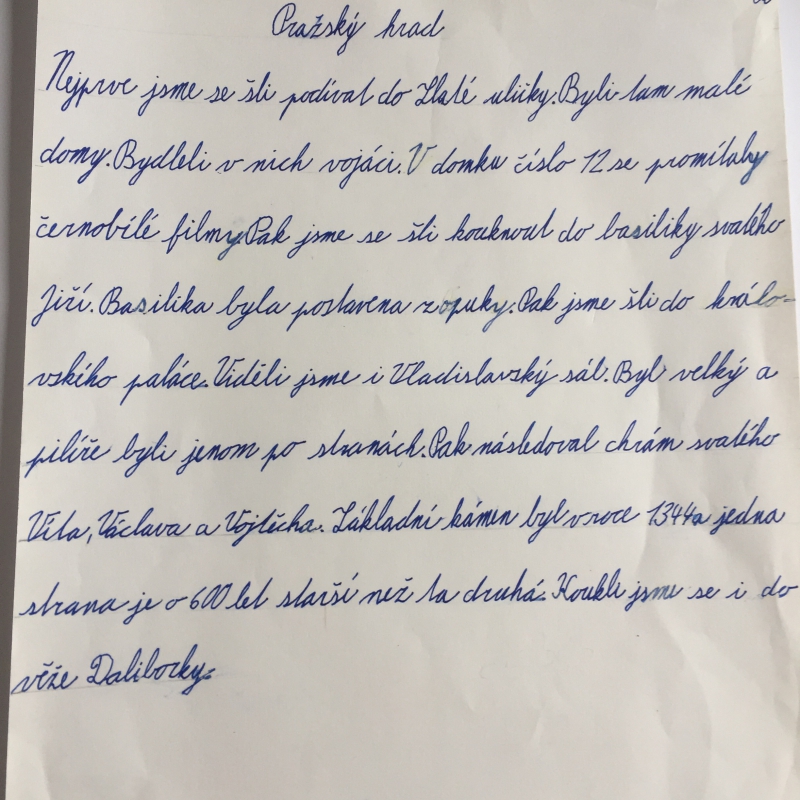 Pražský hrad
Nejprve jsme se šli podívat do Zlaté uličky. Byli tam malé
domy. Bydleli v nich vojáci. V domku číslo 12 se promítaly
černobílé filmy. Pak jsme se šli kouknout do basiliky svatého
Jiří. Basilika byla postavena z opuky. Pak jsme šli do králo-
vského paláce. Viděli jsme i Vladislavský sál. Byl velký a
pilíře byli jenom po stranách. Pak následoval chrám svatého
Víta, Václava a Vojtěcha. Základní kámen byl v roce 1344 a jedna
strana je o 600 let starší než ta druhá. Koukli jsme se i do
věže Daliborky.